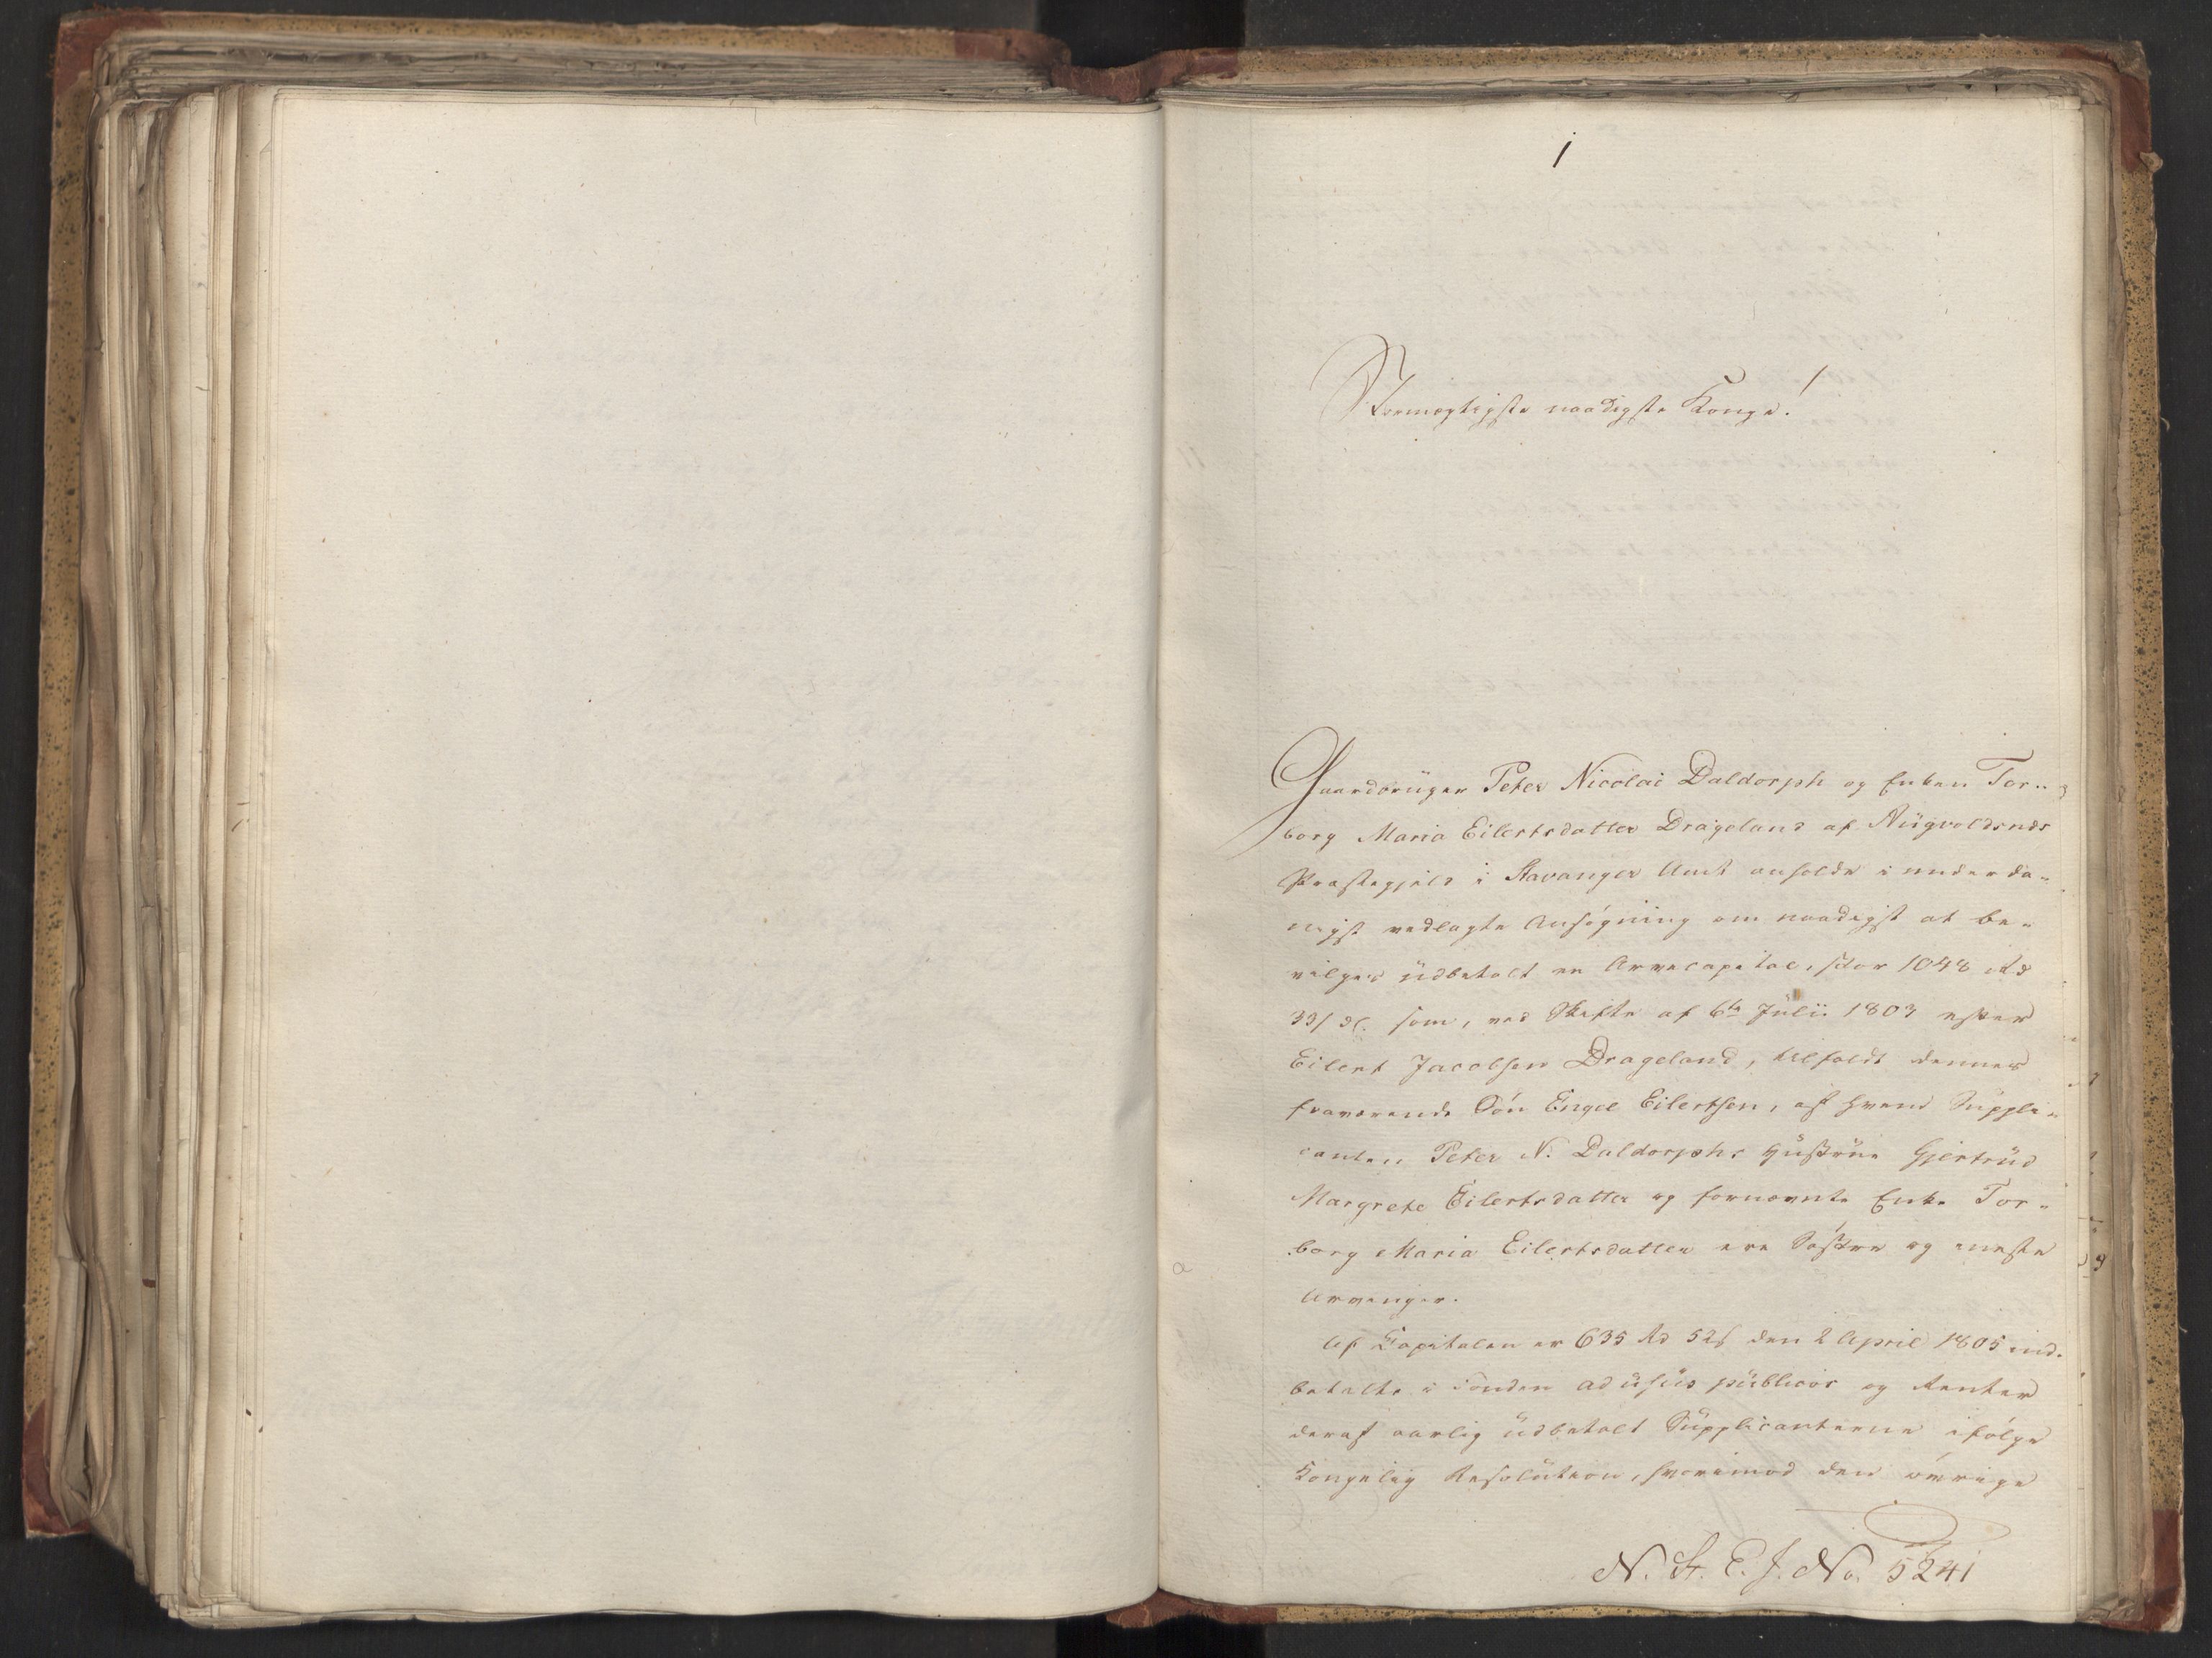 1
Stormægtigste naadigste Konge!
Gaardbrüger Peter Nicolai Daldorph og Enken Tor-
borg Maria Eilertsdatter Drageland af Augvoldsnæs
Præstegjeld i Stavanger Amt anholde i underda-
nigst vedlagte Ansøgning om naadigst at be-
vilges üdbetalt en Arvecapital, stor 1048 rd
33/ s. som, ved Skifte af 6te Jülii 1803 efter
Eilert Jacobsen Drageland, tilfaldt dennes
fraværende Søn Engel Eilertsen, af hvem Suppli-
canten Peter N. Daldorphs Hüstrüe Gjertrüd
Margrete Eilertsdatter og fornævnte Enke Tor-
borg Maria Eilertsdatter ere Søstre og eneste
Arvinger.
Af Capitalen er 635 Rd 52 s den 2 April 1805 ind-
betalte i Fonden ad usüs püblicos og Renter
deraf aarlig üdbetalt Supplicanterne ifølge
Kongelig Resolution, hvorimod den øvrige
N. St. E. J. No. 5241